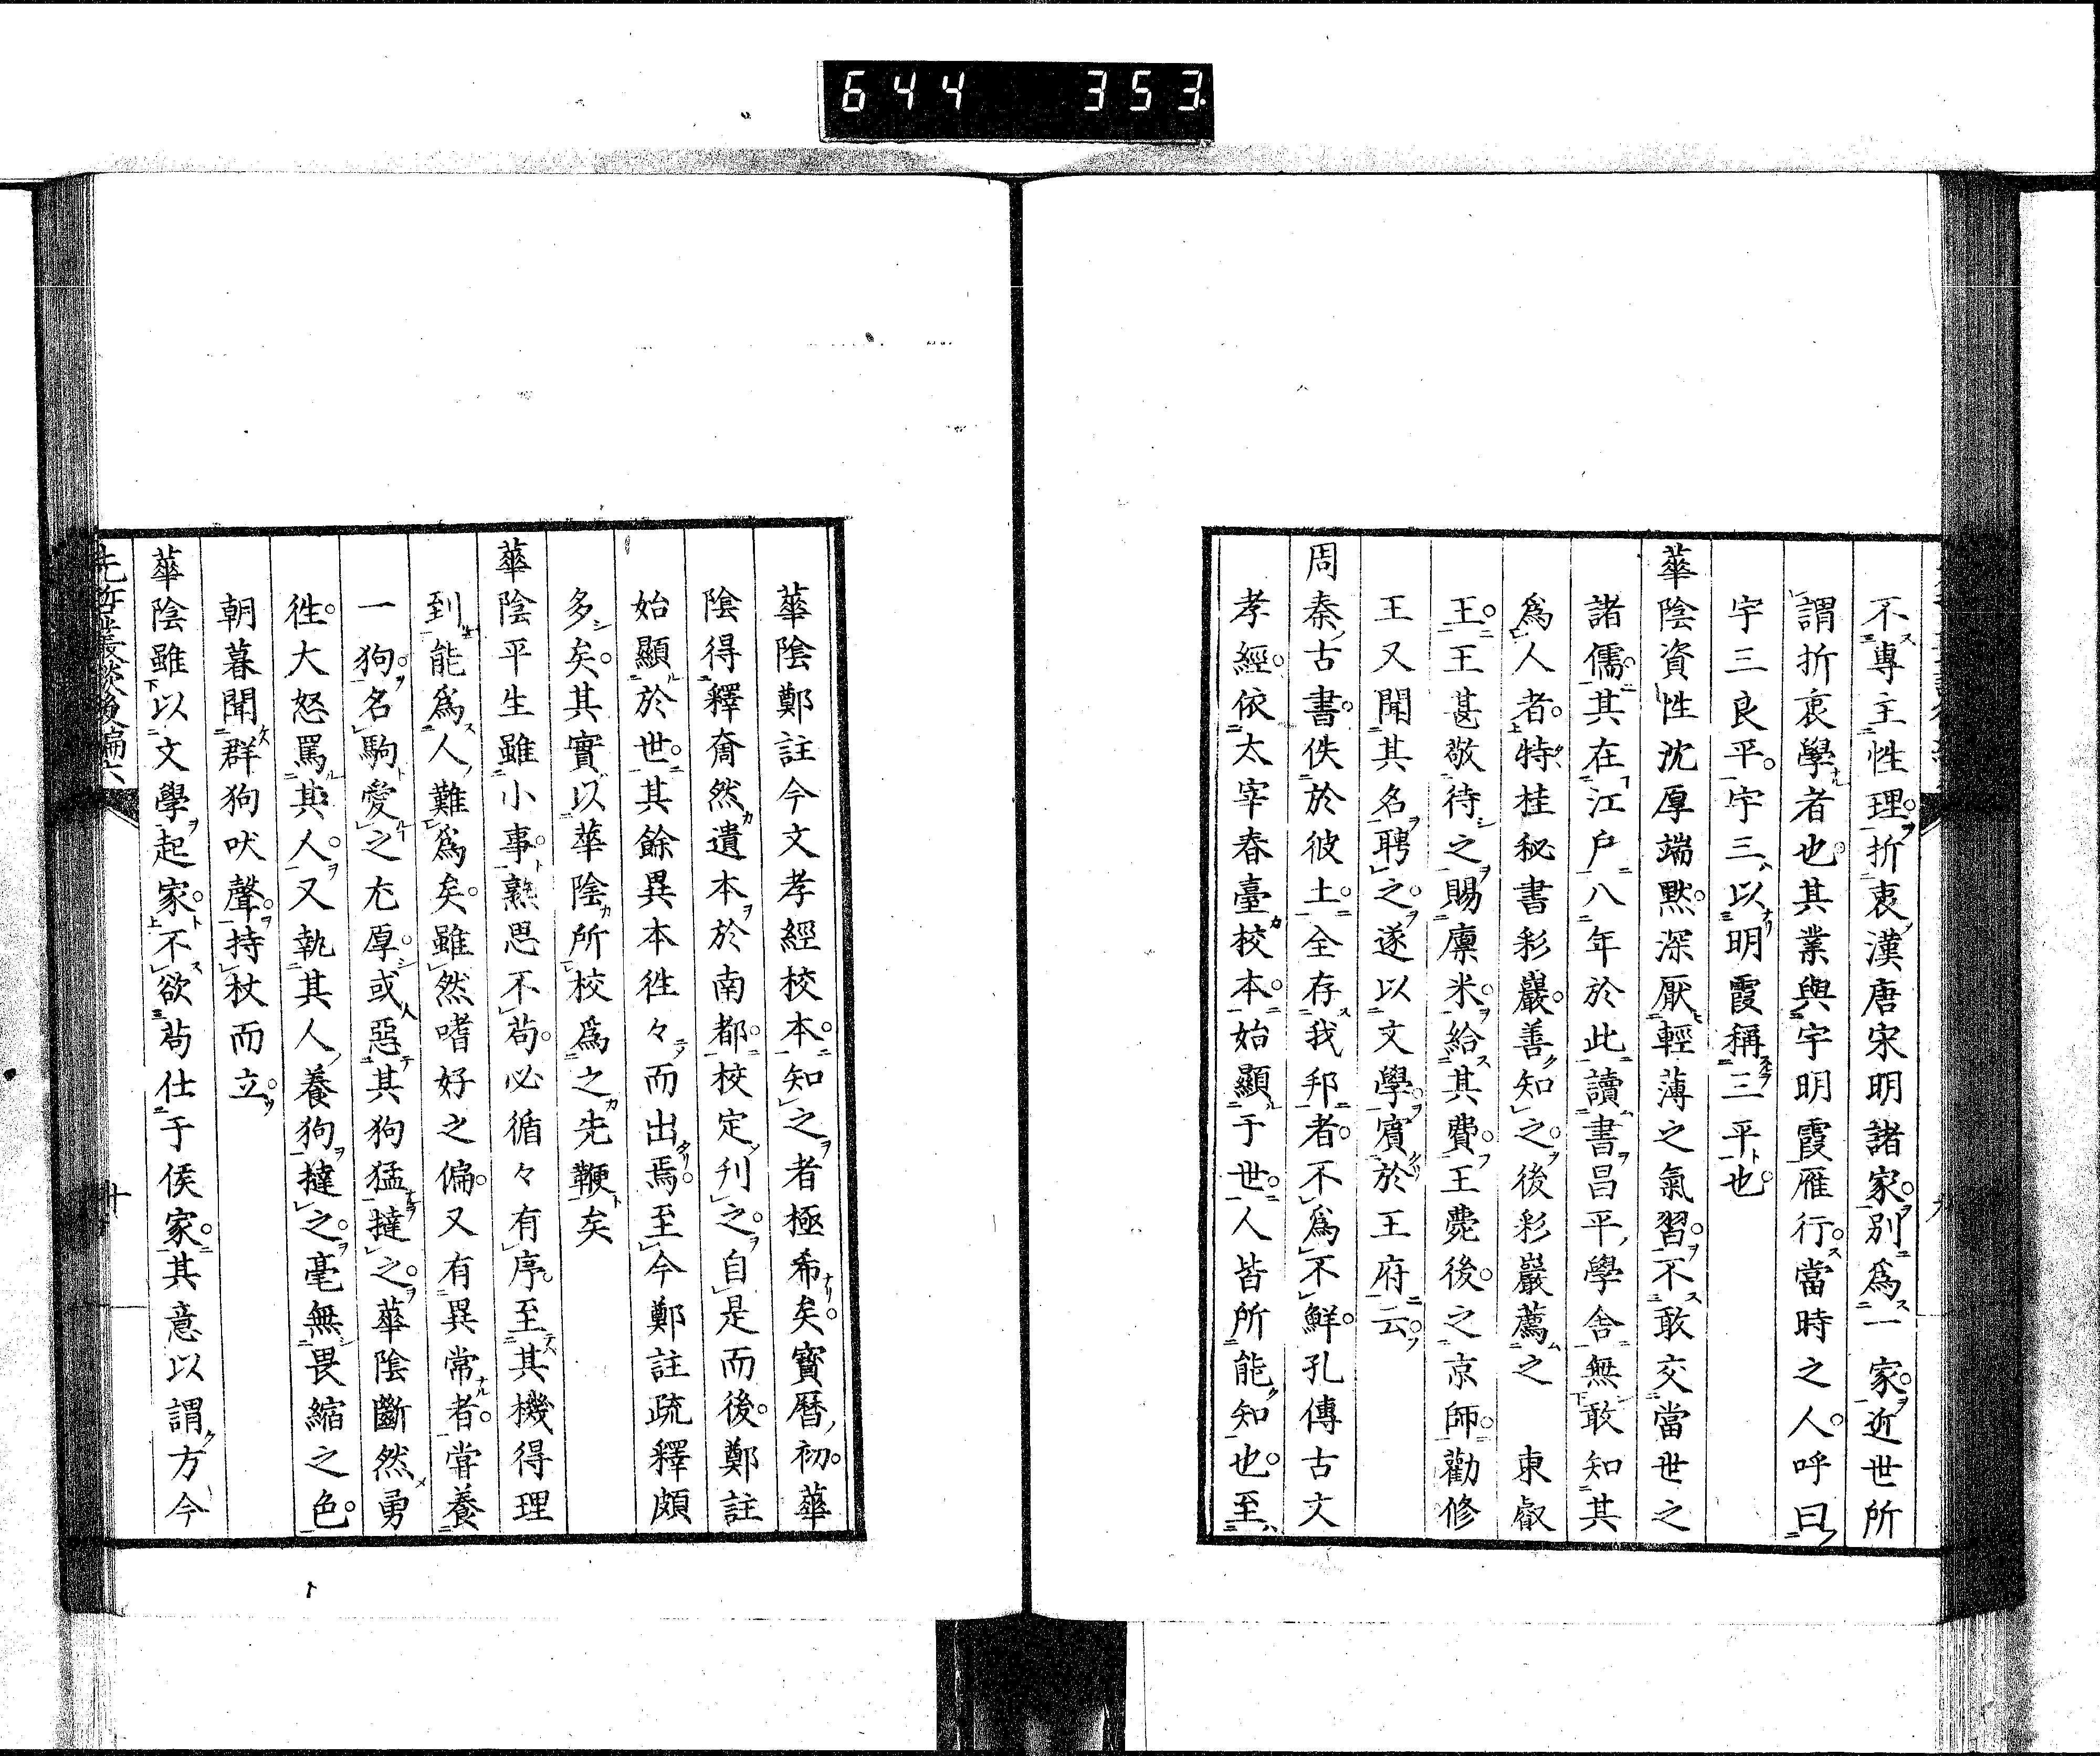 644 353
不專主性理折衷漢唐宋明諸家別爲一家近世所
謂折衷學者也其業與宇明霞雁行當時之人呼曰
宇三良平宇三以明霞稱三平也
華陰資性沈厚端默深厭輕薄之氣習不敢交當世之
諸儒其在江戶八年於此讀書昌平學舍無敢知其
爲人者特桂秘書彩巖善知之後彩巖薦之 東叡
王王甚敬待之賜廩米給其費王薨後之京師勸修
王又聞其名聘之遂以文學賓於王府云
周秦古書佚於彼土全存我邦者不爲不鮮孔傳古文
孝經依太宰春臺挍本始顯于世人皆所能知也至
華陰鄭註今文孝經校本知之者極希矣寳曆初華
陰得釋奝然遺本於南都校定刋之自是而後鄭註
始顯於世其餘異本徃々而出焉至今鄭註疏釋頗
多矣其實以華陰所校爲之先鞭矣
華陰平生雖小事熟思不苟必循々有序至其機得理
到能爲人難爲矣雖然嗜好之偏又有異常者嘗養
一狗名駒愛之尤厚或惡其狗猛撻之華陰斷然勇
徃大怒罵其人又執其人養狗撻之毫無畏縮之色
朝暮聞群狗吠聲持杖而立
華陰雖以文學起家不欲苟仕于侯家其意以謂方今
先哲叢談後編六
十